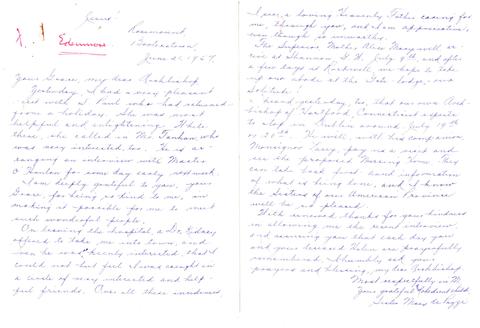 Jesus!
Edenmore
Rosemount,
Booterstown
June 21, 1957.
Your Grace, my dear Archbishop
Yesterday, I had a very pleasant
visit with S. Paul who had returned
from a holiday. She was most
helpful and enlightening. While
there, she called in Mr. who
was very interested, too. He is ar-
ranging an interview with
O'Hanlon for some day early next week.
I am deeply grateful to you, your
Grace, for being so kind to me, in
making it possible for me to meet
such wonderful people.
On leaving the hospital a Dr.
offered to take me into town, and
was keenly interested, that I
could not but feel I was caught in
a circle of very interested and help-
ful friends. Over all these incidences
I see a loving Heavenly Father caring for
me, through you, and I am appreciative,
even though so unworthy.
The Superior Mother, Alice Mary will ar-
rive at Shannon, D.V. July 9th, and after
a few days in Rockwell, we hope to take
up our abode at the Gate-lodge, our
Solitude!
I heard yesterday, too, that our own Arch-
bishop of Hartford, Connecticut expects
to stop in Dublin around July 19th
or 20th. He will, with his companion
Monsignor pay us a visit and
see the proposed Nursing Home. They
can take back first hand information
of what is being done, and I know
the Sisters of our American Province
will be so pleased.
With renewed thanks for your kindness
in allowing me the recent interview
and assuring you that each day you
and your are prayerfully
remembered. I humbly ask your
prayers and blessing, my dear Archbishop
Most respectfully in M.
Your grateful child,
Sister Mary